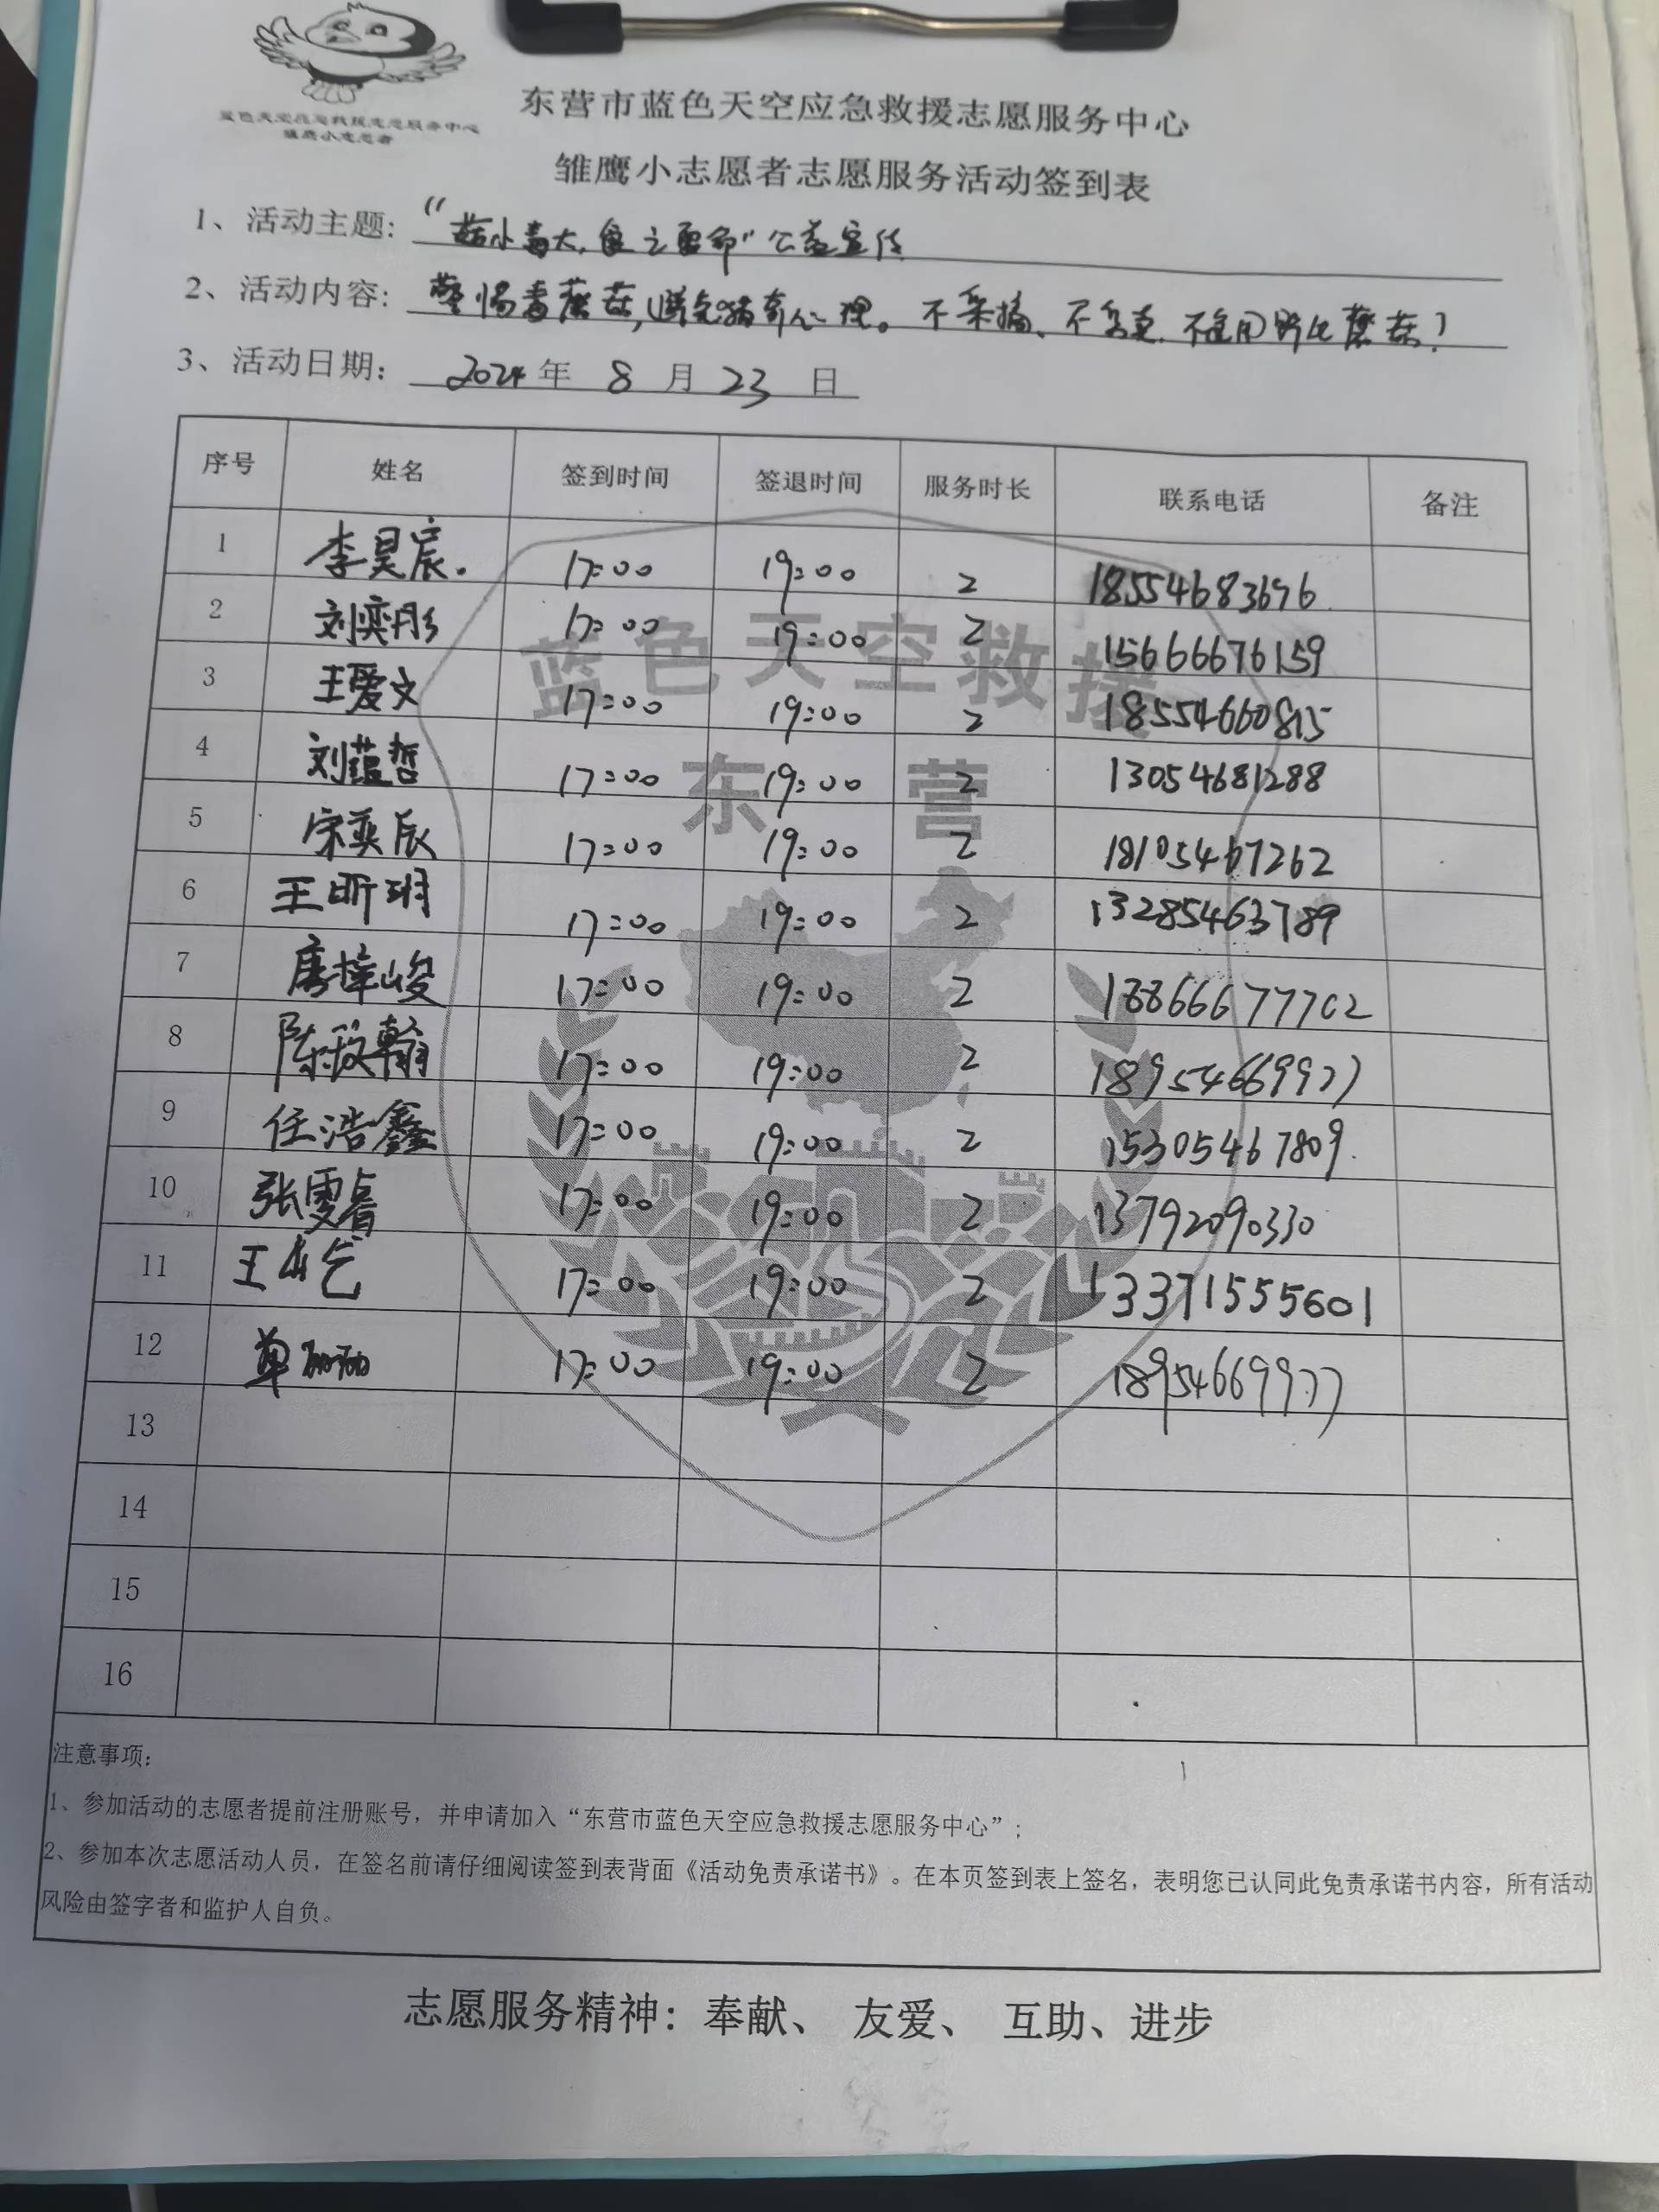 蓝色天空应急救援志愿服务中心
雏鹰小志愿者
东营市蓝色天空应急救援志愿服务中心
雏鹰小志愿者志愿服务活动签到表
1、活动主题：“菇小毒大,食之要命”公益宣传
2、活动内容：警惕毒蘑菇,避免猎奇心理。不采摘、不买卖、不食用野生蘑菇！
3、活动日期：2024年 8 月 23 日
序号 姓名 签到时间 签退时间 服务时长 联系电话 备注
1 李昊宸. 17:00 19:00 2 18554683696
2 刘奕彤 17:00 19:00 2 15666676159
3 王爱文 17:00 19:00 2 18554660815
4 刘蕴哲 17:00 19:00 2 13054681288
5 宋奕辰 17:00 19:00 2 18105467262
6 王昕玥 17:00 19:00 2 13285463789
7 唐梓峻 17:00 19:00 2 18866677702
8 陈 翰 17:00 19:00 2 18954669977
9 任浩鑫 17:00 19:00 2 15305467809.
10 张雯睿 17:00 19:00 2 13792090330
11 王 17:00 19:00 2 13371555601
12 单丽丽 17:00 19:00 2 18954669977
13
14
15
16
蓝色天空救援
东营
注意事项：
1、参加活动的志愿者提前注册账号，并申请加入“东营市蓝色天空应急救援志愿服务中心”；
2、参加本次志愿活动人员，在签名前请仔细阅读签到表背面《活动免责承诺书》。在本页签到表上签名，表明您已认同此免责承诺书内容，所有活动
风险由签字者和监护人自负。
志愿服务精神：奉献、 友爱、 互助、进步